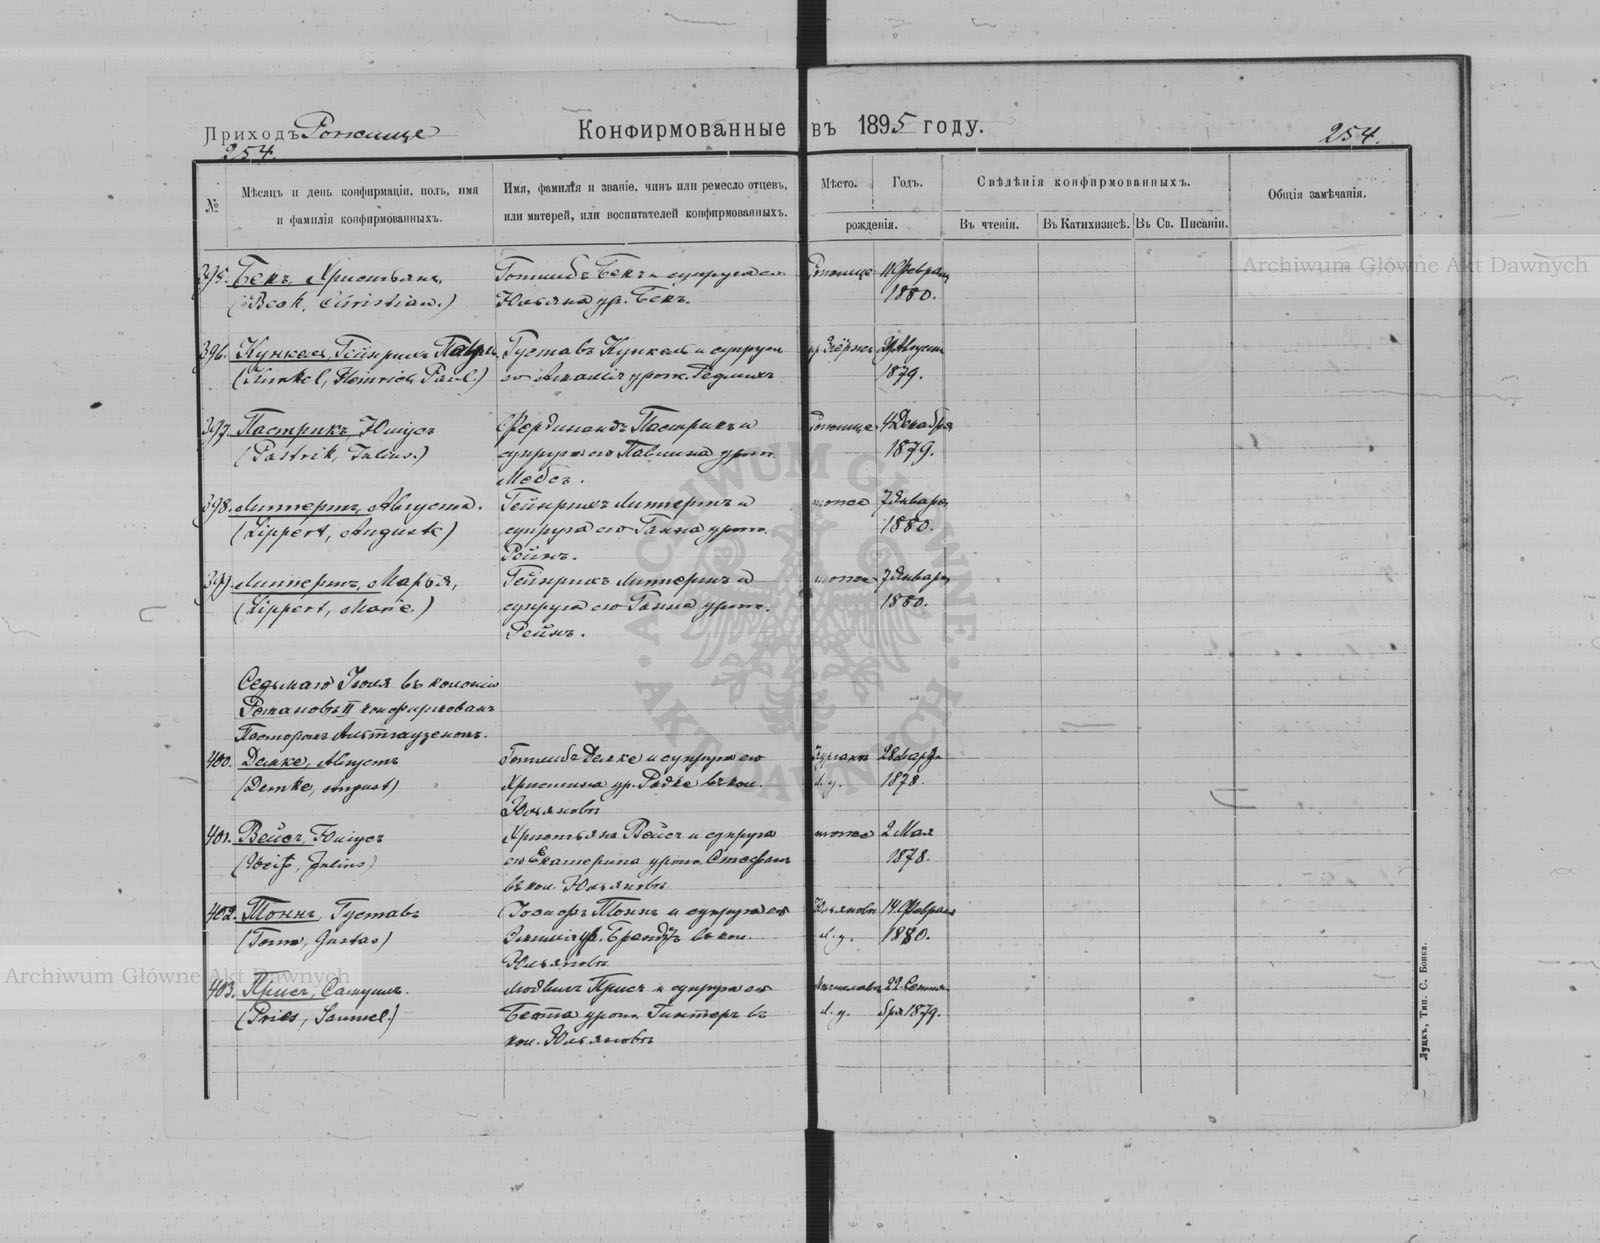 Приходъ Рожище
Конфирмованные въ 1895 году.
254.
254.
№
Мѣсяцъ и день конфирмаціи, полъ, имя
и фамилія конфирмованныхъ.
Имя, фамилія и званіе, чинъ или ремесло отцевъ,
или матерей, или воспитателей конфирмованныхъ.
Мѣсто.
Годъ.
рожденія.
Свѣдѣнія конфирмованныхъ.
Въ чтеніи.
Въ Катихизисѣ.
Въ Св. Писаніи.
Общія замѣчанія.
395. Бекъ, Христьянъ,
(Beck, Christian.)
Готлибъ Бекъ и супруга его
Юльяна ур. Бекъ.
Рожище
11 Февраля
1880.
396. Кункель, Гейнрихъ Павелъ
(Kunkel, Heinrich Paul.)
Густавъ Кункель и супруга
его Амалія урож.
Августа
1879.
397. Пастрикъ, Юліусъ
(Pastrik, Julius.)
Фердинандъ Пастрикъ и
супруга его Павлина урож.
Мебсъ.
Рожище
4 Декабря
1879.
398. Липпертъ, Августа.
(Lippert, Auguste)
Гейнрихъ Липпертъ и
супруга его Ганна урож.
Рейнъ.
тоже
7 Января
1880.
399. Липпертъ, Марья,
(Lippert, Marie.)
Гейнрихъ Липпертъ и
супруга его Ганна урож.
Рейнъ.
тоже
7 Января
1880.
Седьмаго Іюля въ колоніи
Романовъ II конфирмованъ
Пасторомъ Альтгаузеномъ.
400. Демке, Августъ
(Demke, August)
Готлибъ Демке и супруга его
Христина ур. Радке въ кол.
Юльяновъ
Л. у.
28 Марта
1878.
401. Вейсъ, Юліусъ
(Weiß, Julius)
Христьянъ Вейсъ и супруга
его Екатерина урож. Стефанъ
въ кол. Юльяновъ
тоже
2 Мая
1878.
402. Тоннъ, Густавъ
(Tonn, Gustav)
Тоннъ и супруга его
Эмилія ур. Брандтъ въ кол.
Юльяновъ
Юльяновъ
Л. у.
14 Февраля
1880.
403. Присъ, Самуилъ.
(Pries, Samuel.)
Людвигъ Присъ и супруга его
Беата урож. Гинтеръ въ
кол. Юльяновъ
Л. у.
22 Сентя-
бря 1879.
Луцкъ, Тип. С. Бонка.
Archiwum Główne Akt Dawnych
Archiwum Główne Akt Dawnych
ARCHIWUM GŁÓWNE AKT DAWNYCH